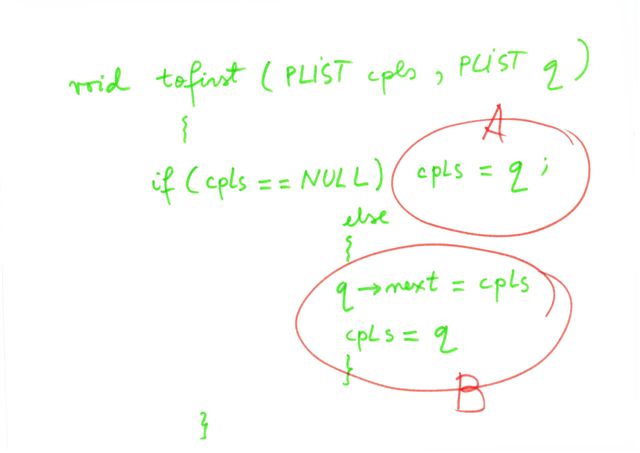 void tofirst ( PLIST cpls , PLIST q )
{
A
if ( cpls == NULL ) cpls = q ;
else
{
q → next = cpls
cpls = q
}
B
}